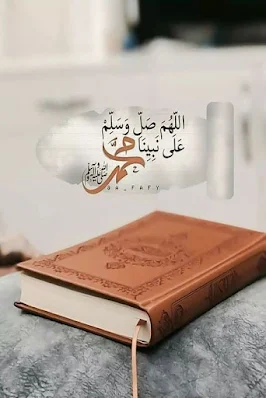 اللَّهُمَ صَلِّ وَسَلِّمْ
عَلَى نَبِينَا
محمد ﷺ